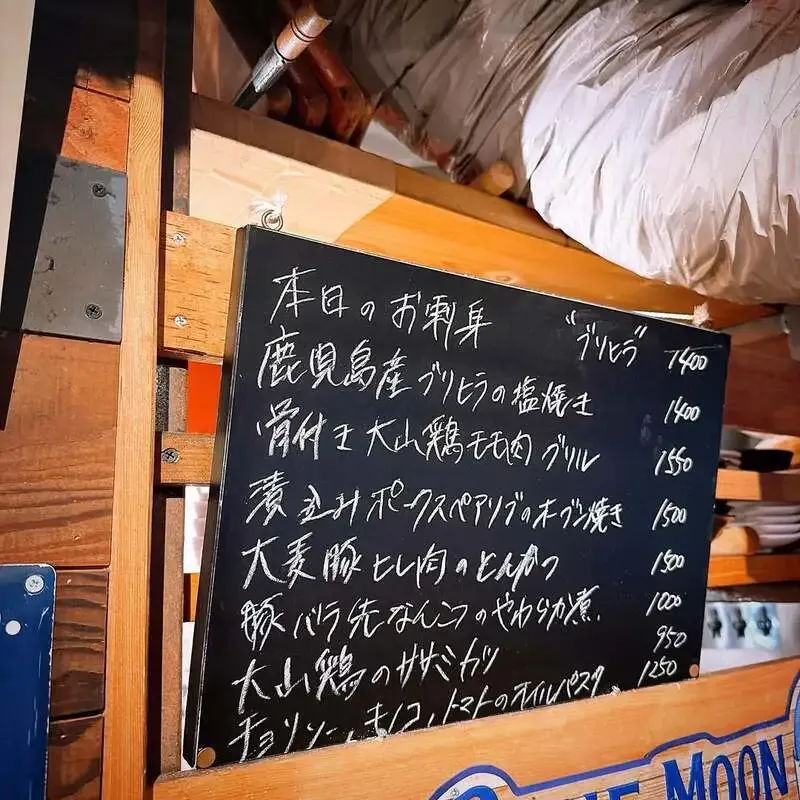 本日のお刺身 "ブリヒラ" 1400
鹿児島産ブリヒラの塩焼き 1400
骨付き大山鶏モモ肉グリル 1550
漬込みポークスペアリブのオーブン焼き 1500
大麦豚ヒレ肉のとんかつ 1500
豚バラ先なんこつのやわらか煮. 1000
大山鶏のササミカツ 950
チョリソー、キノコ、トマトのオイルパスタ. 1250
MOON